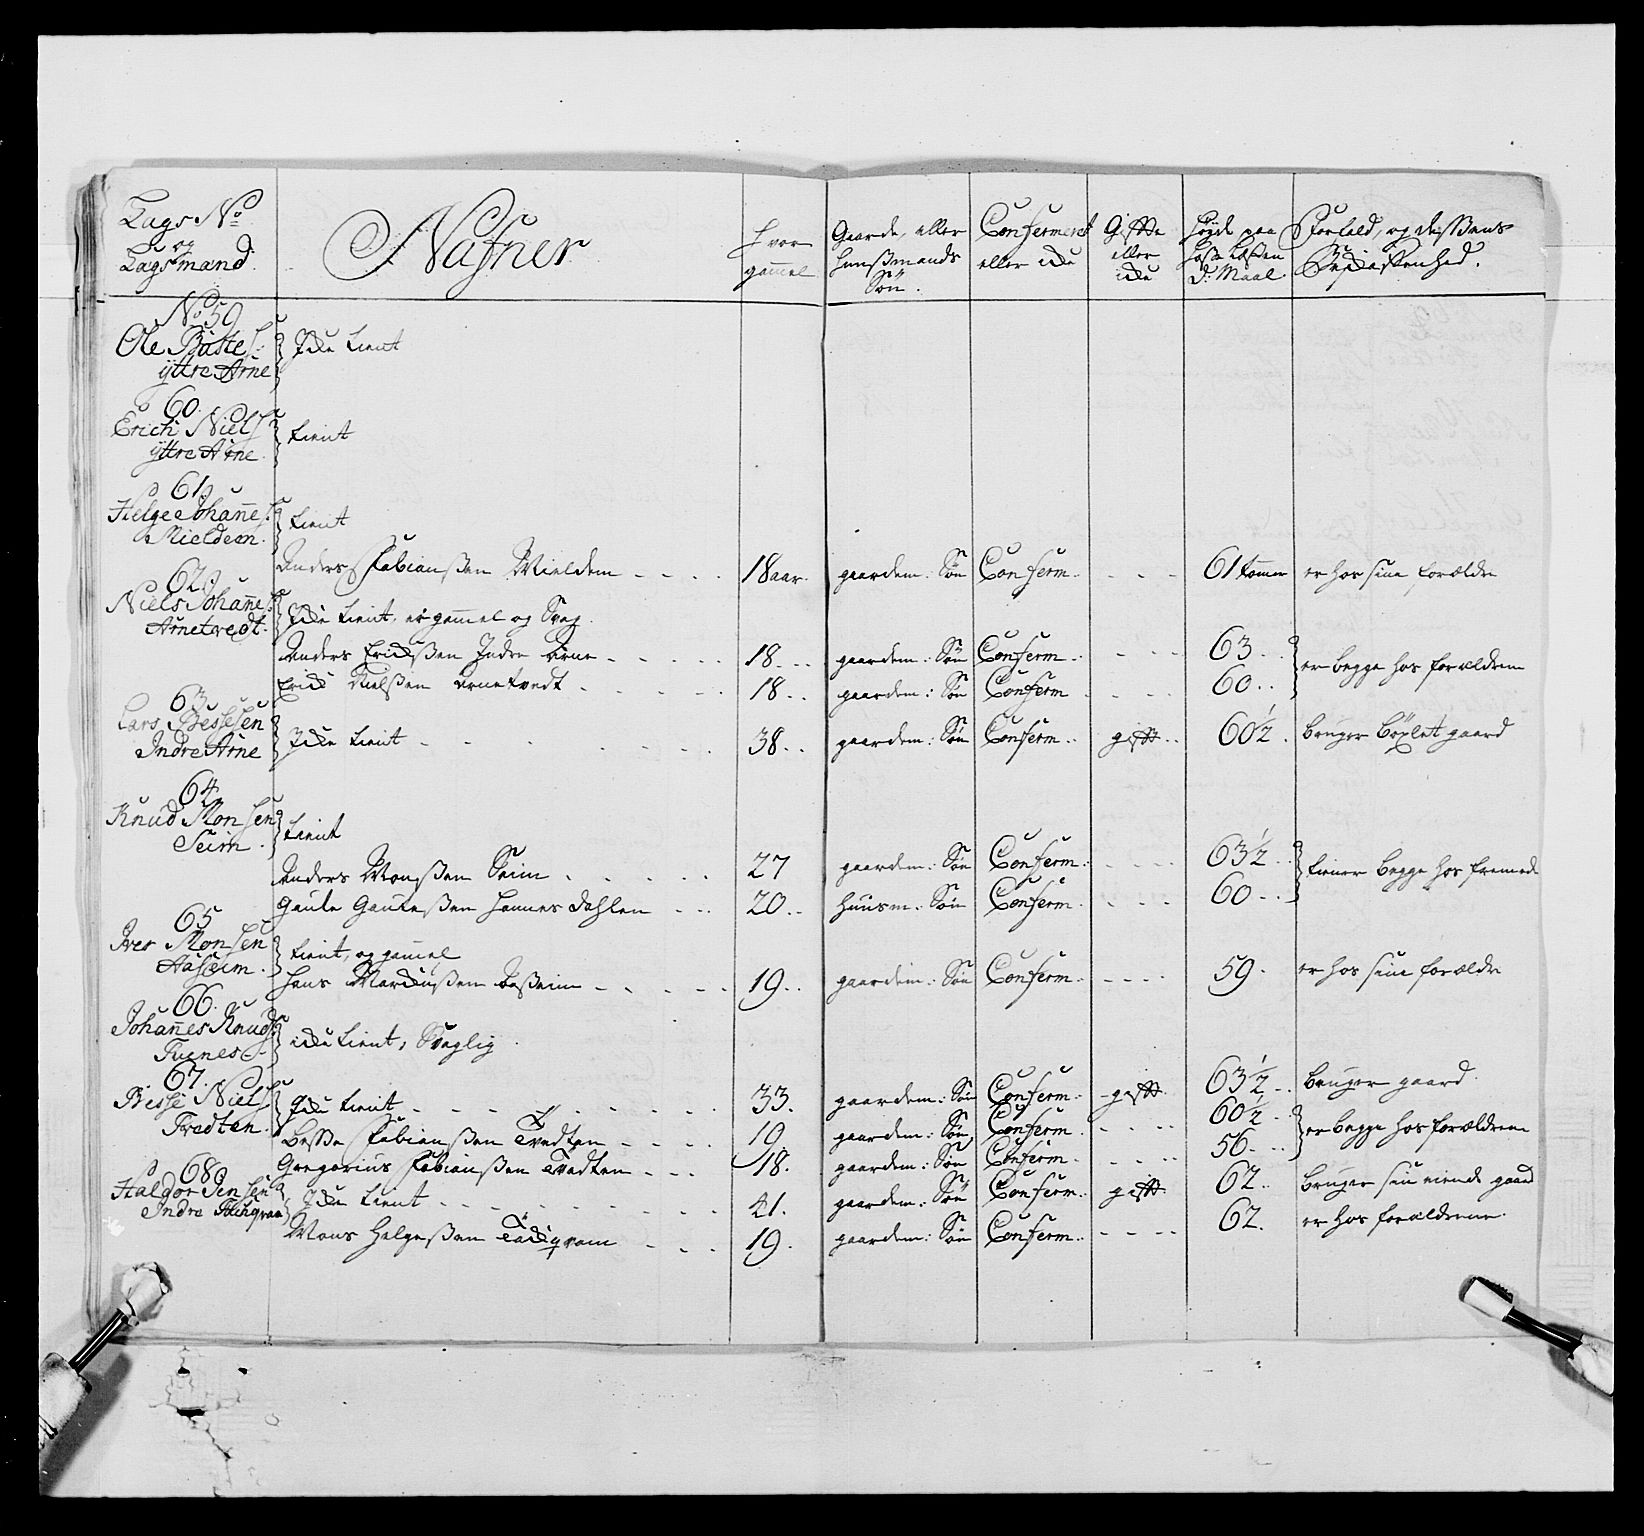 Lags No
og
Lagsmand.
Nafner
Hvor
gammel
Gaards, eller
Huusmands
Søn.
Confermeret
eller icke
Gifte
eller
icke
Høyde paa
D: Maal
Forhold, og dessen
Beskaffenhed.
No 59
Ole Børtels:
yttre Arne
Icke tient
60.
Erich Niels:
yttre Arne.
tient
61.
Helge Johannes:
Mieldem.
tient
Anders Fabianssen Mieldem - - - - 18 aar. gaardem: Søn Conferm. - - - 61 tommer er hos sine forældre
62.
Niels Johannes:
Arnetvedt.
Icke tient, er gammel og Svag.
Anders Erichssen Indre Arne - - - - 18. - - gaardem: Søn Conferm. - - - 63. er begge hos forældrene
Erich Nielssen Arnetvedt - - - - 18. - gaardem: Søn Conferm - - - 60. .
63.
Lars Bessesen
Indre Arne
Icke tient - - - - 38. - gaardem: Søn Conferm. gift. 60½. bruger böxlet gaard
64.
Knud Monsen
Seim.
tient
Anders Monssen Seim . . . . . 27 gaardem: Søn Conferm. - - - - 63½ tiener begge hos fremede
Gaute Gautessen Hannes dahlen - - - 20. . huusm: Søn Conferm. - - - 60 - -
65
Iver Monsen
Aaseim.
tient, og gammel
Hans Marcussen - - - - - 19. . gaardem: Søn Conferm. - - - - 59. er hos sine forældre
66.
Johannes Knuds:
Tuenes
icke tient, Svaglig
67.
Besse Niels:
Tredten.
Icke tient - - - - - 33. gaardem: Søn Conferm. gift. 63½ - . bruger gaard.
Besse Fabianssen Tvedten - - - - 19 gaardem: Søn Conferm. - - - - 60½ er begge hos forældrene
Gregorius Fabianssen Tvedten - - - 18. gaardem: Søn Conferm. - - - 56. - .
68.
Haldor Jensen
Indre
Icke tient - - - - - 41. gaardem: Søn Conferm. gift. 62. . bruger sin eiende gaard
Mons Helgessen - - - 19. gaardem: Søn Conferm. - - - - 62. er hos forældrene.